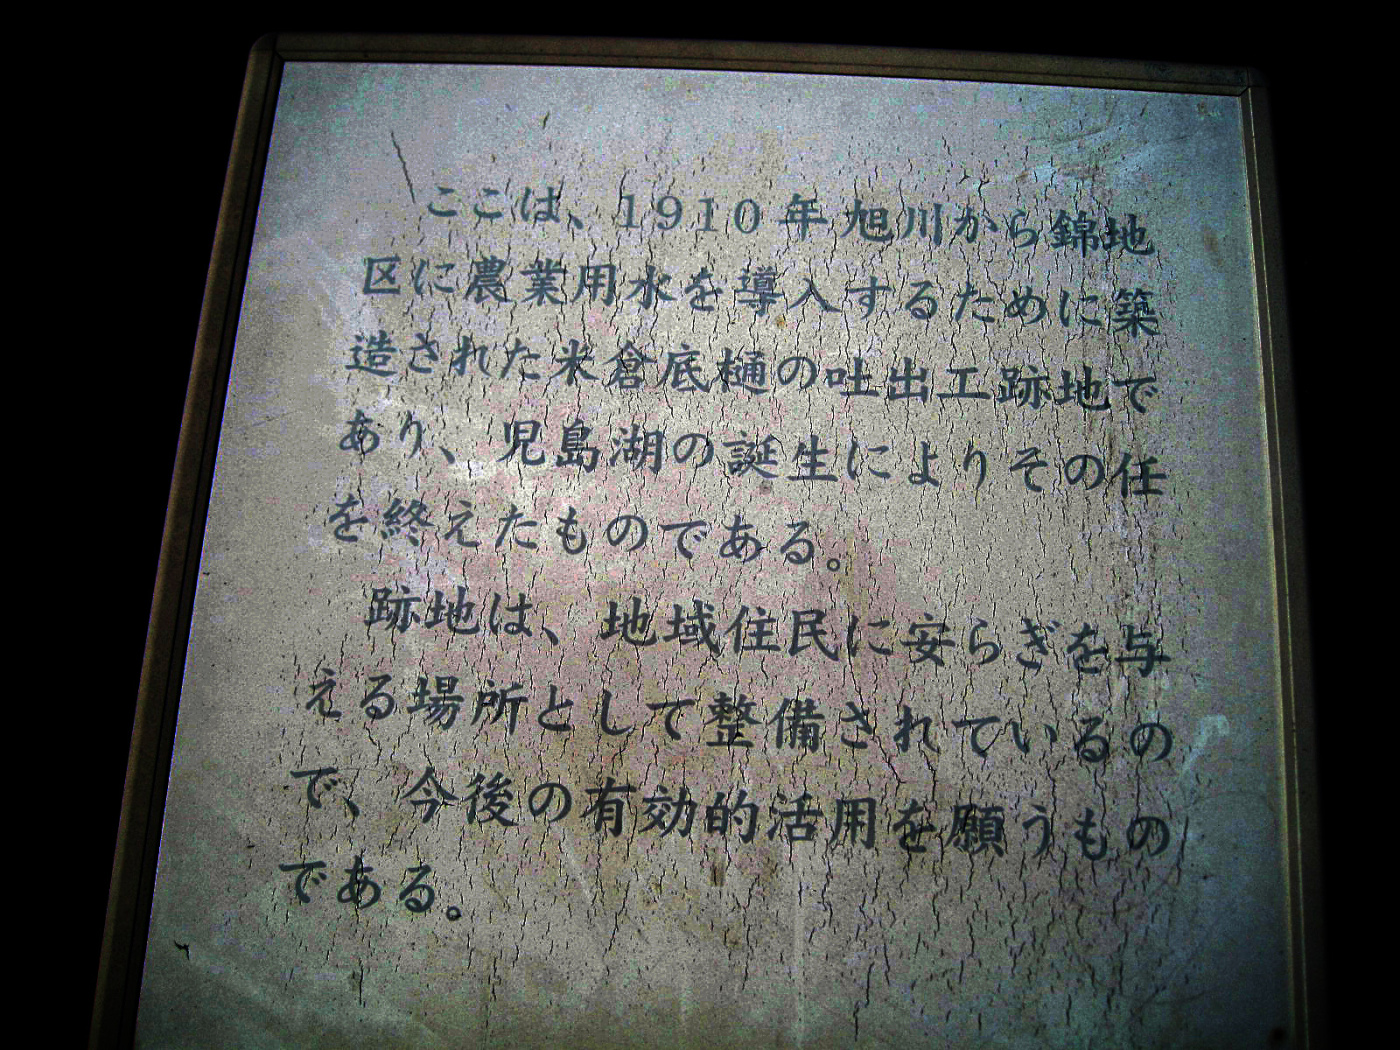 ここは、1910年旭川から錦地
区に農業用水を導入するために築
造された米倉底樋の吐出工跡地で
あり、児島湖の誕生によりその任
を終えたものである。
跡地は、地域住民に安らぎを与
える場所として整備されているの
で、今後の有効的活用を願うもの
である。